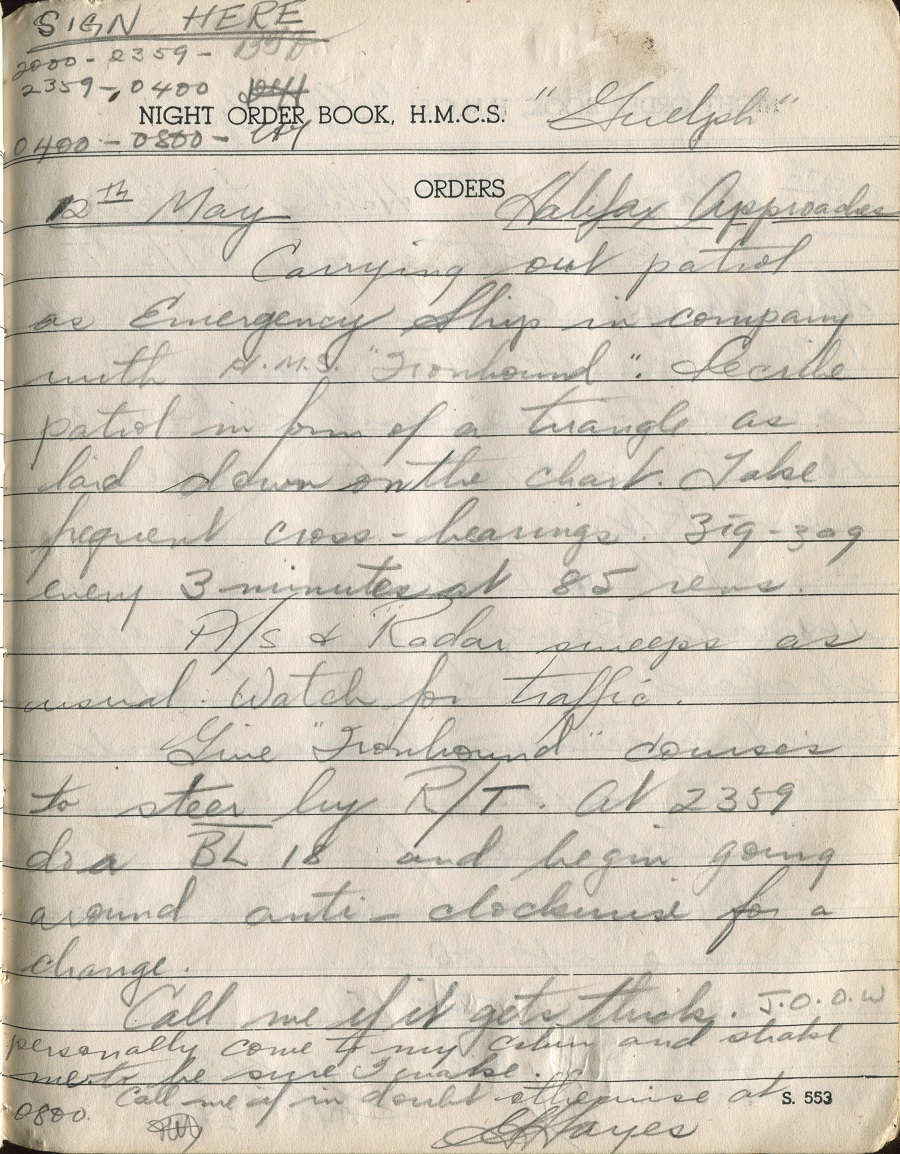 SIGN HERE
2000 - 2359 -
2359 - 0400
NIGHT ORDER BOOK, H.M.C.S. "Guelph"
0400 - 0800 -
ORDERS
12th May Halifax Approaches
Carrying out patrol
as Emergency Ship in company
with H.M.S. "Ironbound". Execute
patrol in form of a triangle as
laid down on the chart. Take
frequent cross-bearings. Zig-zag
every 3 minutes at 85 revs.
A/S & Radar sweeps as
usual. Watch for traffic.
Give "Ironbound" courses
to steer by R/T. At 2359
do a BL 18 and begin going
around anti-clockwise for a
change.
Call me if it gets thick. J.O.O.W
personally come to my cabin and shake
me to be sure I wake.
Call me if in doubt otherwise at
0800.
S. 553
Hayes